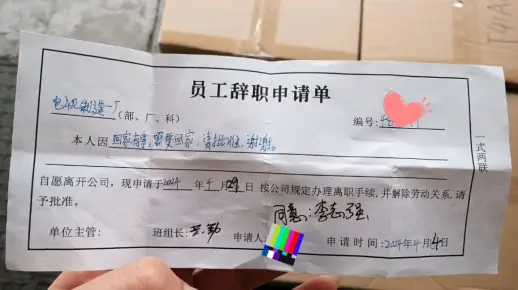 员工辞职申请单
电视制造一厂(部、厂、科) 编号:
本人因 回家有事,需要回家,请批准,谢谢。
一式两联
自愿离开公司,现申请于2024年4月29日 按公司规定办理离职手续,并解除劳动关系,请
予批准。
同意:李志强
单位主管: 班组长: 申请人: 申请时间:2024年4月4日